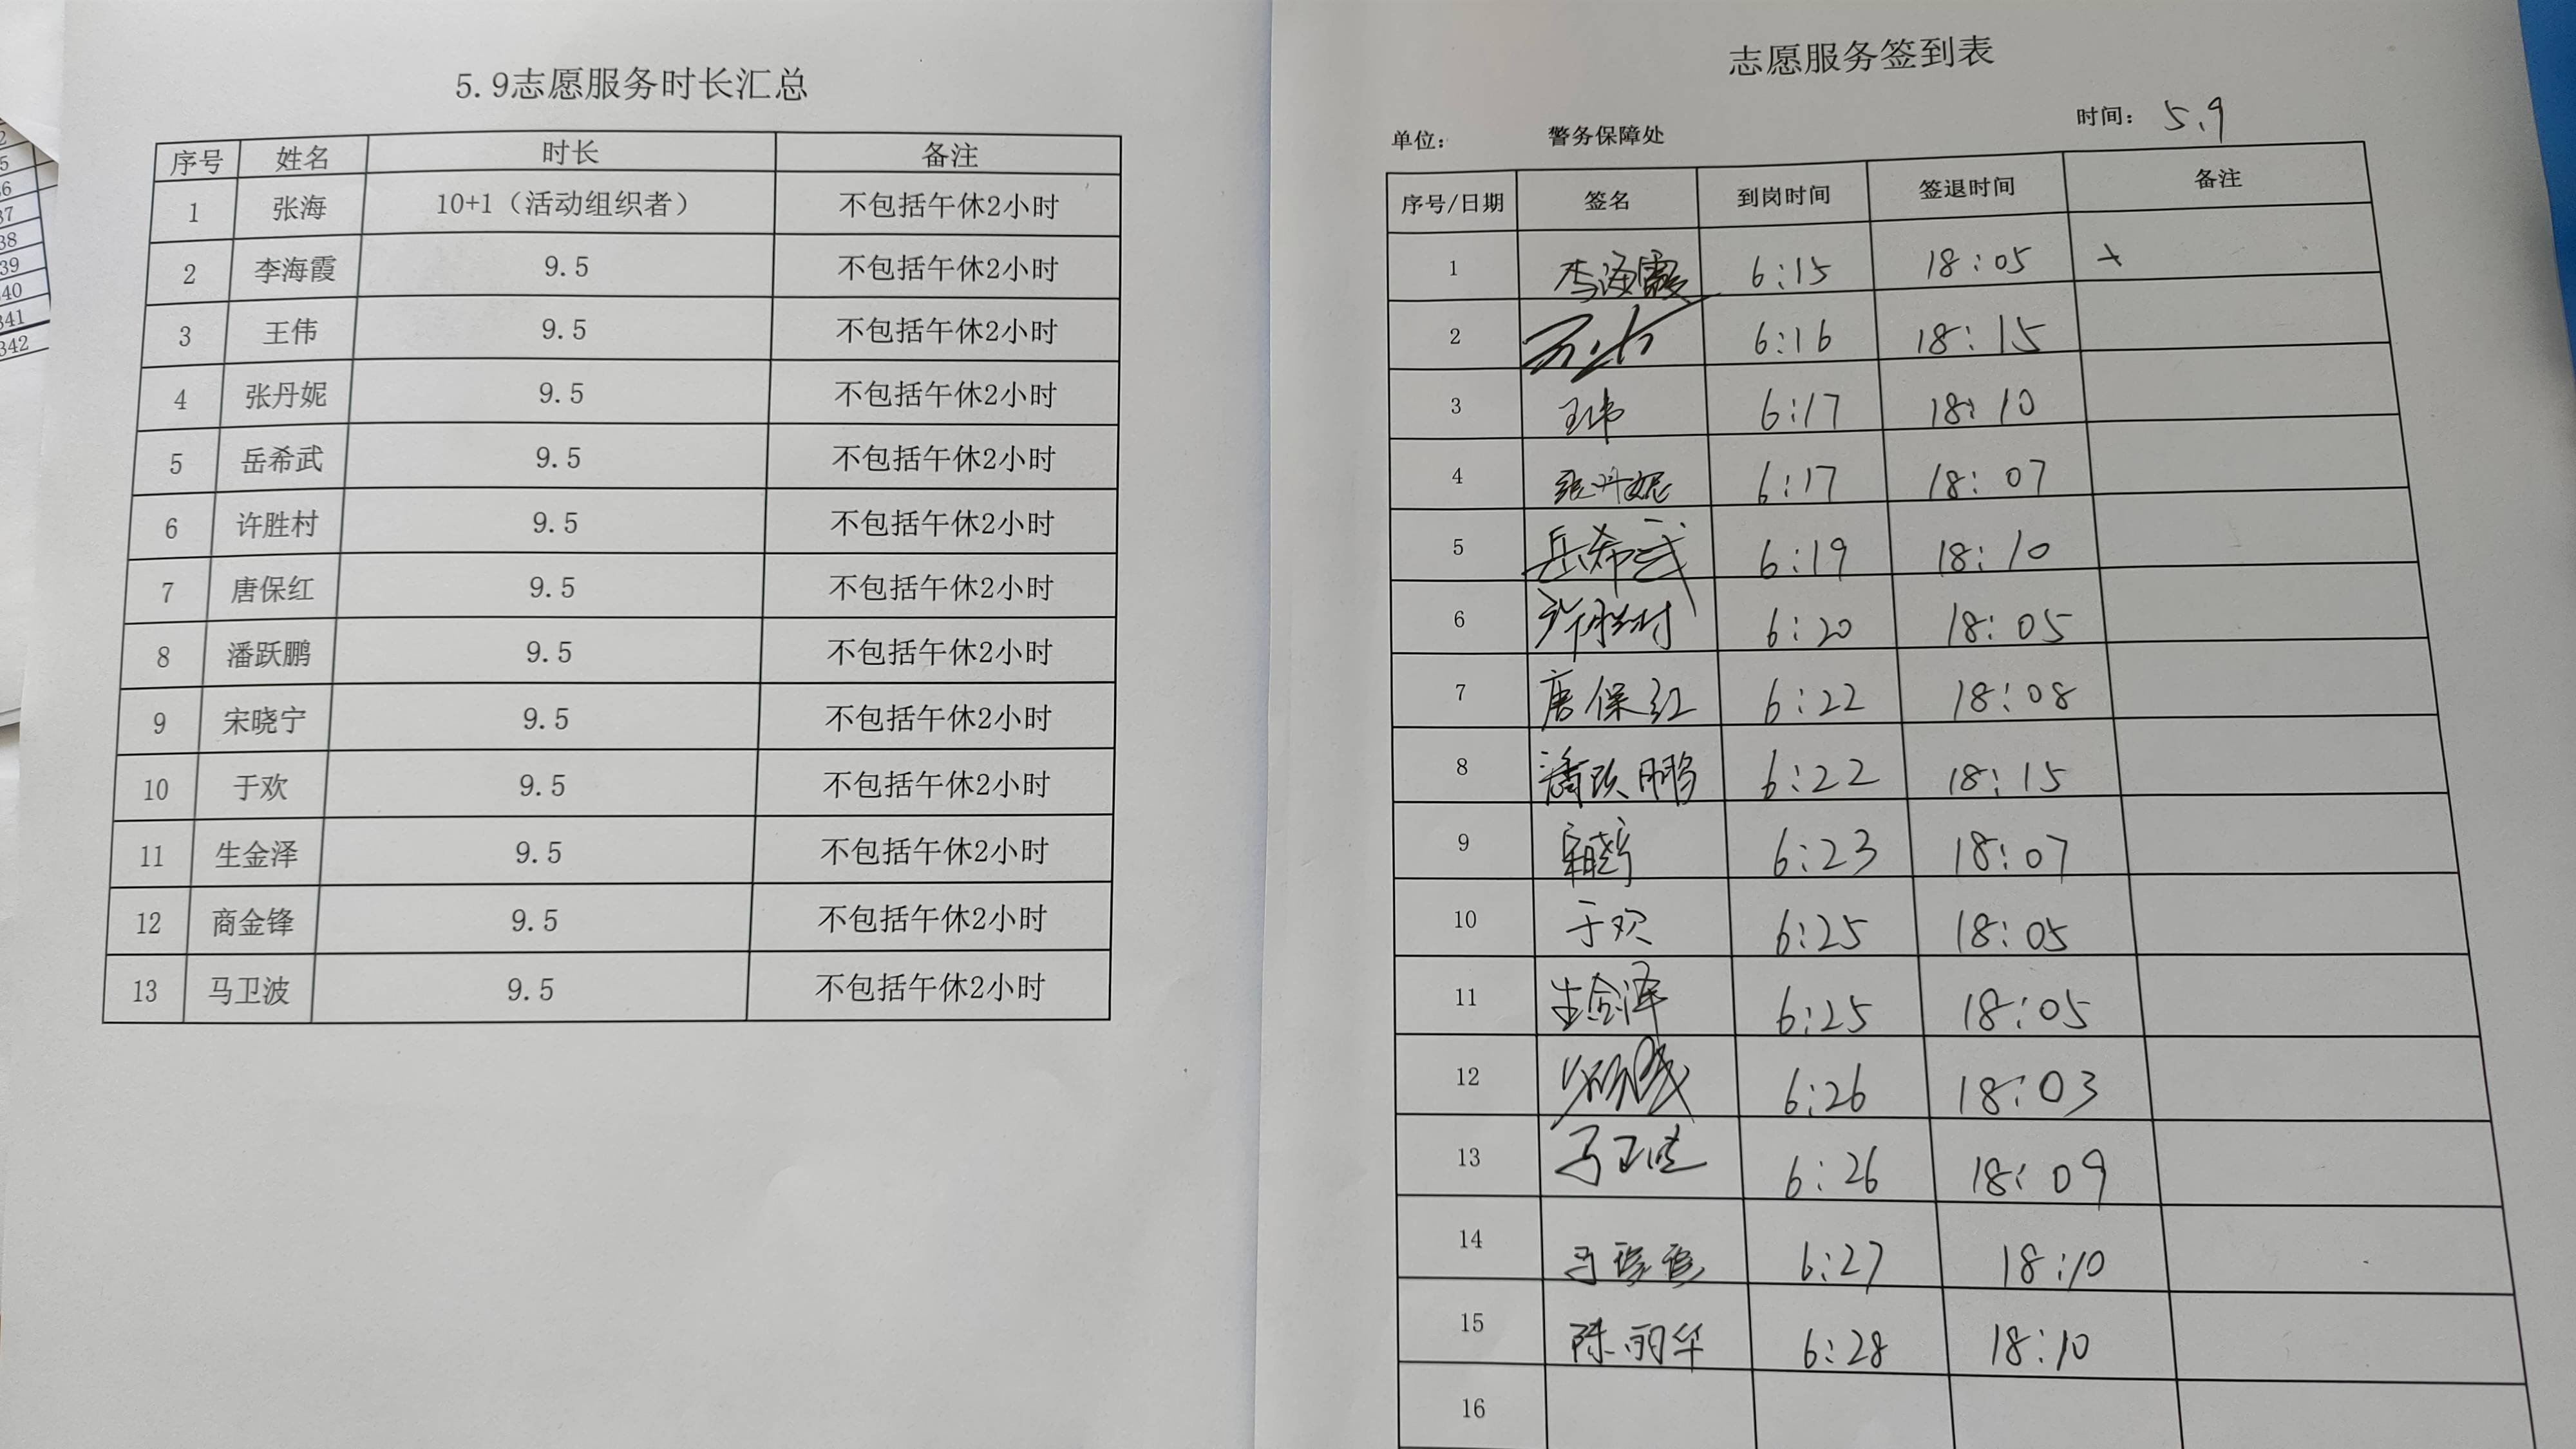 5.9志愿服务时长汇总
序号 姓名 时长 备注
1 张海 10+1（活动组织者） 不包括午休2小时
2 李海霞 9.5 不包括午休2小时
3 王伟 9.5 不包括午休2小时
4 张丹妮 9.5 不包括午休2小时
5 岳希武 9.5 不包括午休2小时
6 许胜村 9.5 不包括午休2小时
7 唐保红 9.5 不包括午休2小时
8 潘跃鹏 9.5 不包括午休2小时
9 宋晓宁 9.5 不包括午休2小时
10 于欢 9.5 不包括午休2小时
11 生金泽 9.5 不包括午休2小时
12 商金锋 9.5 不包括午休2小时
13 马卫波 9.5 不包括午休2小时
志愿服务签到表
单位： 警务保障处 时间： 5.9
序号/日期 签名 到岗时间 签退时间 备注
1 李海霞 6:15 18:05
2 6:16 18:15
3 王伟 6:17 18:10
4 张丹妮 6:17 18:07
5 岳希武 6:19 18:10
6 许胜村 6:20 18:05
7 唐保红 6:22 18:08
8 潘跃鹏 6:22 18:15
9 宋晓宁 6:23 18:07
10 于欢 6:25 18:05
11 生金泽 6:25 18:05
12 6:26 18:03
13 马卫波 6:26 18:09
14 6:27 18:10
15 陈丽华 6:28 18:10
16
38
39
40
341
342